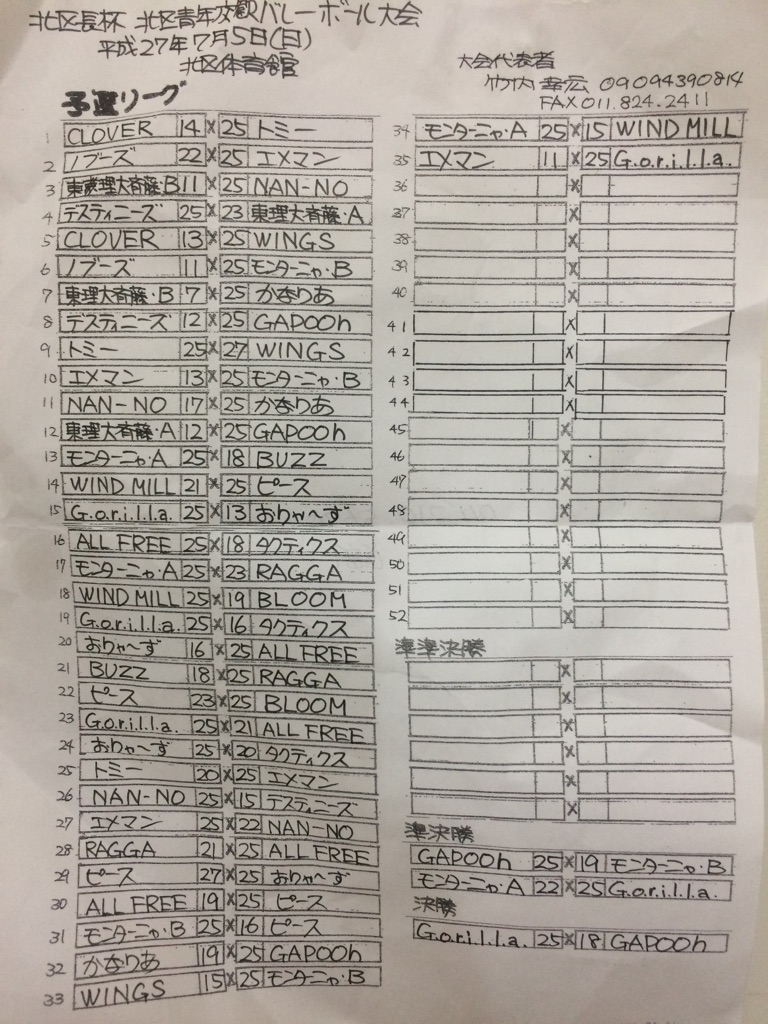 北区長杯 北区青年交歓バレーボール大会
平成27年7月5日(日)
北区体育館
大会代表者
竹内 幸宏 09094390814
FAX 011.824.2411
予選リーグ
1 CLOVER 14 × 25 トミー
2 ノブーズ 22 × 25 エメマン
3 東薬理大斉藤・B 11 × 25 NAN-NO
4 デスティニーズ 25 × 23 東理大斉藤・A
5 CLOVER 13 × 25 WINGS
6 ノブーズ 11 × 25 モンターニャ・B
7 東理大斉藤・B 7 × 25 かなりあ
8 デスティニーズ 12 × 25 GAPOOh
9 トミー 25 × 27 WINGS
10 エメマン 13 × 25 モンターニャ・B
11 NAN-NO 17 × 25 かなりあ
12 東理大斉藤・A 12 × 25 GAPOOh
13 モンターニャ・A 25 × 18 BUZZ
14 WIND MILL 21 × 25 ピース
15 G.o.r.i.l.l.a. 25 × 13 おりゃ〜ず
16 ALL FREE 25 × 18 タクティクス
17 モンターニャ・A 25 × 23 RAGGA
18 WIND MILL 25 × 19 BLOOM
19 G.o.r.i.l.l.a. 25 × 16 タクティクス
20 おりゃ〜ず 16 × 25 ALL FREE
21 BUZZ 18 × 25 RAGGA
22 ピース 23 × 25 BLOOM
23 G.o.r.i.l.l.a. 25 × 21 ALL FREE
24 おりゃ〜ず 25 × 20 タクティクス
25 トミー 20 × 25 エメマン
26 NAN-NO 25 × 15 デスティニーズ
27 エメマン 25 × 22 NAN-NO
28 RAGGA 21 × 25 ALL FREE
29 ピース 27 × 25 おりゃ〜ず
30 ALL FREE 19 × 25 ピース
31 モンターニャ・B 25 × 16 ピース
32 かなりあ 19 × 25 GAPOOh
33 WINGS 15 × 25 モンターニャ・B
34 モンターニャ・A 25 × 15 WIND MILL
35 エメマン 11 × 25 G.o.r.i.l.l.a.
36 ×
37 ×
38 ×
39 ×
40 ×
41 ×
42 ×
43 ×
44 ×
45 ×
46 ×
47 ×
48 ×
49 ×
50 ×
51 ×
52 ×
準準決勝
×
×
×
×
×
×
準決勝
GAPOOh 25 × 19 モンターニャ・B
モンターニャ・A 22 × 25 G.o.r.i.l.l.a.
決勝
G.o.r.i.l.l.a. 25 × 18 GAPOOh